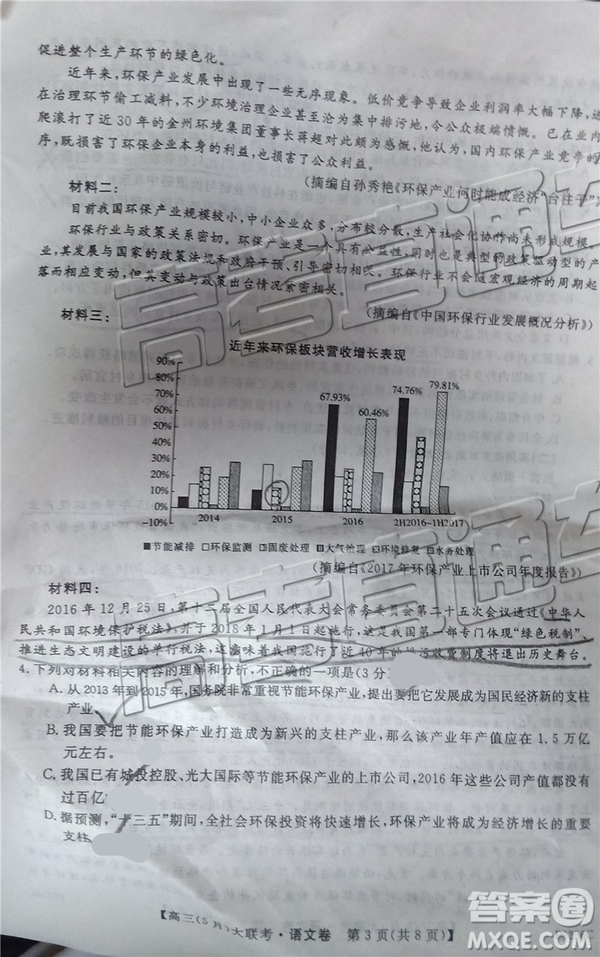 促进整个生产环节的绿色化。
近年来,环保产业发展中出现了一些无序现象。低价竞争导致企业利润率大幅下降,进
在治理环节偷工减料,不少环境治理企业甚至沦为集中排污地,令公众极端愤慨。已在业内
爬滚打了近 30 年的金州环境集团董事长蒋超对此颇为感慨,他认为,国内环保产业竞争的
序,既损害了环保企业本身的利益,也损害了公众利益。
(摘编自孙秀艳《环保产业何时能成经济“台柱子”
材料二:
目前我国环保产业规模较小,中小企业众多,分布较分散,生产社会化协作尚未形成规模。
环保行业与政策关系密切。环保产业是具有公益性的产业,同时也是典型的政策驱动型的产
业,其发展与国家的政策法规和政府干预、引导密切相关。环保行业不会随宏观经济的周期起
落而相应变动,但其变动与政策出台情况系密相关。
(摘编自《中国环保行业发展概况分析》)
材料三:
近年来环保板块营收增长表现
90%
80%
70%
60%
50%
40%
30%
20%
10%
0%
-10%
67.93%
60.46%
74.76%
79.81%
2014
2015
2016
2H2016~1H2017
节能减排 环保监测 固废处理 大气治理 环境修复 水务处理
(摘编自《2017 年环保产业上市公司年度报告》)
材料四:
2016 年 12 月 25 日,第十二届全国人民代表大会常务委员会第二十五次会议通过《中华人
民共和国环境保护税法》,并于 2018 年 1 月 1 日起施行,这是我国第一部专门体现“绿色税制”、
推进生态文明建设的单行税法,这意味着我国施行了近 40 年的排污收费制度将退出历史舞台。
4. 下列对材料相关内容的理解和分析,不正确的一项是(3 分)
A. 从 2013 年到 2015 年,国务院非常重视节能环保产业,提出要把它发展成为国民经济新的支柱
产业
B. 我国要把节能环保产业打造成为新兴的支柱产业,那么该产业年产值应在 1.5 万亿
元左右。
C. 我国已有城投控股、光大国际等节能环保产业的上市公司,2016 年这些公司产值都没有
过百亿
D. 据预测,“十三五”期间,全社会环保投资将快速增长,环保产业将成为经济增长的重要
支柱
【高三(5 月)大联考·语文卷 第 3 页(共 8 页)】
高考直通车
高考直通车
答案圈
MXQE.COM